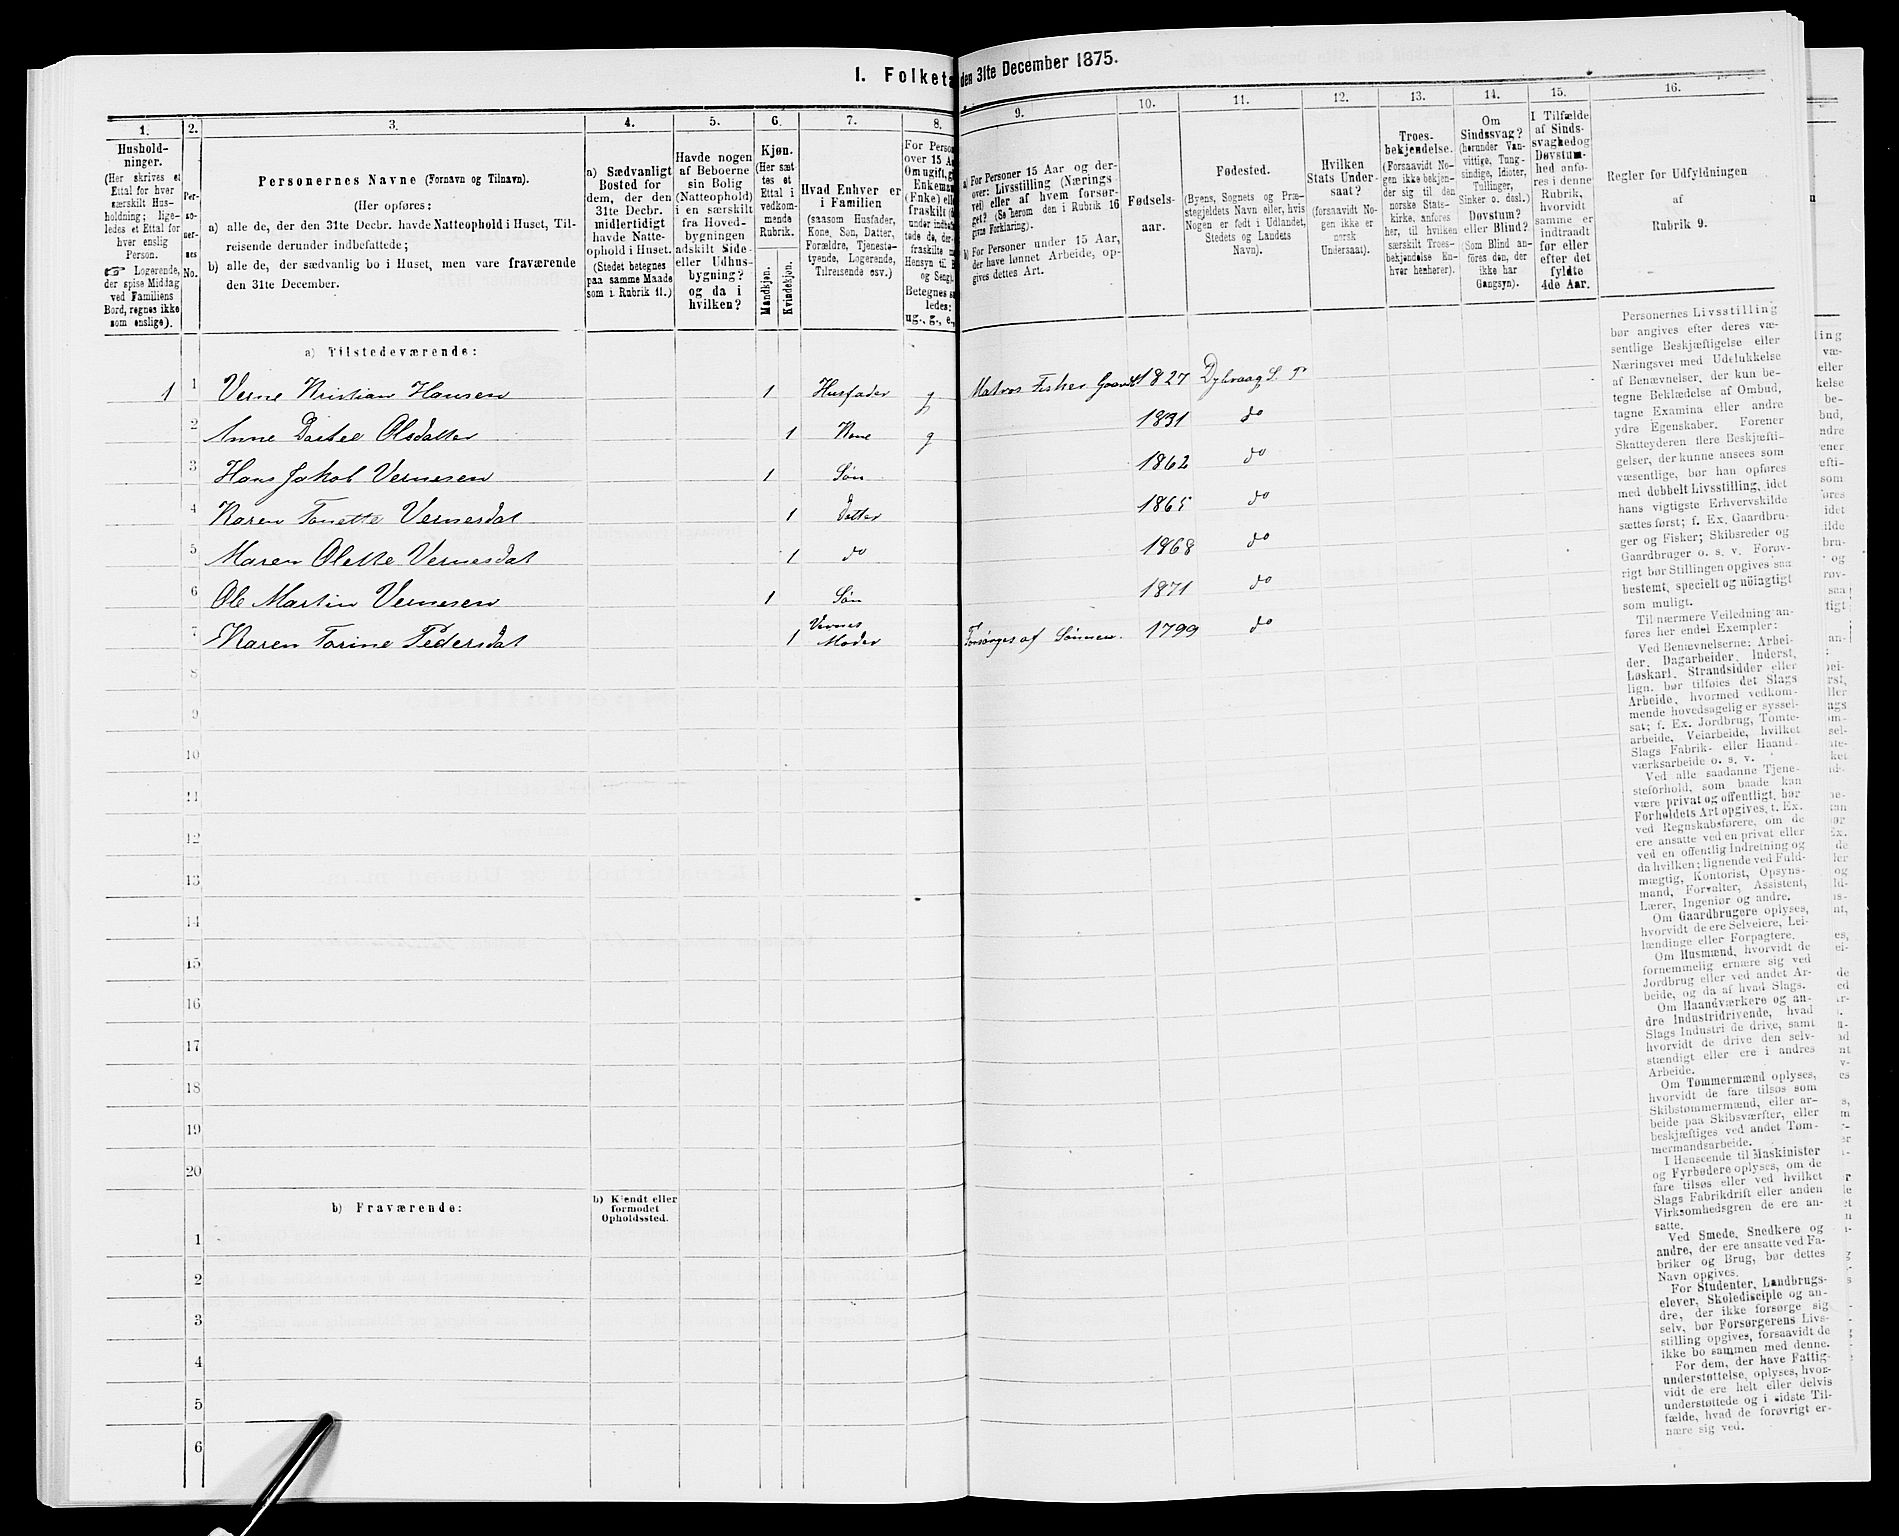 I. Folketæ
den 31te December 1875.
1. 2. 3. 4. 5. 6. 7. 8.
Hushold-
ninger.
(Her skrives et
Ettal for hver
særskilt Hus-
holdning; lige-
ledes et Ettal for
hver enslig
Person.
☞ Logerende,
der spise Middag
ved Familiens
Bord, regnes ikke
som enslige).
Per-
so-
ner-
nes
No.
Personernes Navne (Fornavn og Tilnavn).
(Her opføres:
a) alle de, der den 31te Decbr. havde Natteophold i Huset, Til-
reisende derunder indbefattede;
b) alle de, der sædvanlig bo i Huset, men vare fraværende
den 31te December.
a) Sædvanligt
Bosted for
dem, der den
31te Decbr.
midlertidigt
havde Natte-
ophold i Huset.
(Stedet betegnes
paa samme Maade
som i Rubrik 11.)
Havde nogen
af Beboerne
sin Bolig
(Natteophold)
i en særskilt
fra Hoved-
bygningen
adskilt Side-
eller Udhus-
bygning?
og da i
hvilken?
Kjøn.
(Her sæt-
tes et
Ettal i
vedkom-
mende
Rubrik.
Mandkjøn.
Kvindekjøn.
Hvad Enhver er
i Familien
(saasom Husfader,
Kone, Søn, Datter,
Forældre, Tjeneste-
tyende, Logerende,
Tilreisende osv.)
For Person
over 15 Aa
Om ugift, g
Enkeman
(Enke) ell
fraskilt (
under indbe
tede de, der
fraskilte
Hensyn til
og Seng).
Betegnes s
ledes:
ug., g., e.,
9. 10. 11. 12. 13. 14. 15. 16.
a) For Personer 15 Aar og der-
over: Livsstilling (Nærings-
vei) eller af hvem forsør-
get? (Se herom den i Rubrik 16
givne Forklaring).
b) For Personer under 15 Aar,
der have lønnet Arbeide, op-
gives dettes Art.
Fødsels-
aar.
Fødested.
(Byens, Sognets og Præ-
stegjeldets Navn eller, hvis
Nogen er født i Udlandet,
Stedets og Landets
Navn).
Hvilken
Stats Under-
saat?
(forsaavidt No-
gen ikke er
norsk
Undersaat).
Troes-
bekjendelse.
(Forsaavidt No-
gen ikke bekjen-
der sig til den
norske Stats-
kirke, anføres
her, til hvilken
særskilt Troes-
bekjendelse En-
hver henhører).
Om
Sindssvag?
(herunder Van-
vittige, Tung-
sindige, Idioter,
Tullinger,
Sinker o. desl.)
Døvstum?
eller Blind?
(Som Blind an-
føres den, der
ikke har
Gangsyn).
I Tilfælde
af Sinds-
svaghed og
Døvstum-
hed anfø-
res i denne
Rubrik,
hvorvidt
samme er
indtraadt
før eller
efter det
fyldte
4de Aar.
Regler for Udfyldningen
af
Rubrik 9.
a) Tilstedeværende:
1 1 Verne Kristian Hansen 1 Husfader g Matros Fisker Gaardb 1827 Dybvaag S. P
2 Anne Dortee Olsdatter 1 Kone g 1831 do
3 Hans Jakob Vernesen 1 Søn 1862 do
4 Karen Tonette Vernesdat 1 Datter 1865 do
5 Maren Olette Vernesdat 1 do 1868 do
6 Ole Martin Vernesen 1 Søn 1871 do
7 Karen Torine Pedersdat 1 Vernes Moder Forsørges af Sønnen. 1799 do
8
9
10
11
12
13
14
15
16
17
18
19
20
b) Fraværende:
b) Kjendt eller
formodet
Opholdssted.
1
2
3
4
5
6
Personernes Livsstilling
bør angives efter deres væ-
sentlige Beskjæftigelse eller
Næringsvei med Udelukkelse
af Benævnelser, der kun be-
tegne Beklædelse af Ombud,
tagne Examina eller andre
ydre Egenskaber. Forener
Skatteyderen flere Beskjæfti-
gelser, der kunne ansees som
væsentlige, bør han opføres
med dobbelt Livsstilling, idet
hans vigtigste Erhvervskilde
sættes først; f. Ex. Gaardbru-
ger og Fisker; Skibsreder og
Gaardbruger o. s. v. Forøv-
rigt bør Stillingen opgives saa
bestemt, specielt og nöiagtigt
som muligt.
Til nærmere Veiledning an-
føres her endel Exempler:
Ved Benævnelserne: Arbei-
der, Dagarbeider, Inderst,
Løskarl, Strandsidder eller
lign. bør tilføies det Slags
Arbeide, hvormed vedkom-
mende hovedsagelig er syssel-
sat; f. Ex. Jordbrug, Tomte-
arbeide, Veiarbeide, hvilket
Slags Fabrik- eller Haand-
værksarbeide o. s. v.
Ved alle saadanne Tjene-
steforhold, som baade kan
være privat og offentligt, bør
Forholdets Art opgives, t. Ex.
ved Regnskabsførere, om de
ere ansatte ved en privat eller
ved en offentlig Indretning og
da hvilken; lignende ved Fuld-
mægtig, Kontorist, Opsyns-
mand, Forvalter, Assistent,
Lærer, Ingeniør og andre.
Om Gaardbrugere oplyses,
hvorvidt de ere Selveiere, Lei-
lændinge eller Forpagtere.
Om Husmænd, hvorvidt de
fornemmelig ernære sig ved
Jordbrug eller ved andet Ar-
beide, og da af hvad Slags.
Om Haandværkere og an-
dre Industridrivende, hvad
Slags Industri de drive, samt
hvorvidt de drive den selv-
stændigt eller ere i andres
Arbeide.
Om Tømmermænd oplyses,
hvorvidt de fare tilsøs som
Skibstømmermænd, eller ar-
beide paa Skibsværfter, eller
beskjæftiges ved andet Tøm-
mermandsarbeide.
I Henseende til Maskinister
og Fyrbødere oplyses, om de
fare tilsøs eller ved hvilket
Slags Fabrikdrift eller anden
Virksomhedsgren de ere an-
satte.
Ved Smede, Snedkere og
andre, der ere ansatte ved Fa-
briker og Brug, bør dettes
Navn opgives.
For Studenter, Landbrugs-
elever, Skoledisciple og an-
dre, der ikke forsørge sig
selv, bør Forsørgerens Livs-
stilling opgives, forsaavidt de
ikke bo sammen med denne.
For dem, der have Fattig-
understøttelse, oplyses, hvor-
vidt de ere helt eller delvis
understøttede og i sidste Til-
fælde, hvad de forøvrigt er-
nære sig ved.